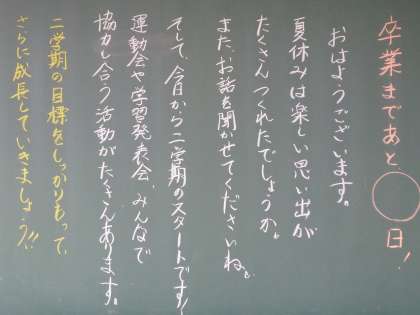 卒業まであと◯日！
おはようございます。
夏休みは楽しい思い出が
たくさんつくれたでしょうか。
また、お話を聞かせてくださいね。
そして、今日から二学期のスタートです！
運動会や学習発表会、みんなで
協力し合う活動がたくさんあります。
二学期の目標をしっかりもって、
さらに成長していきましょう！！